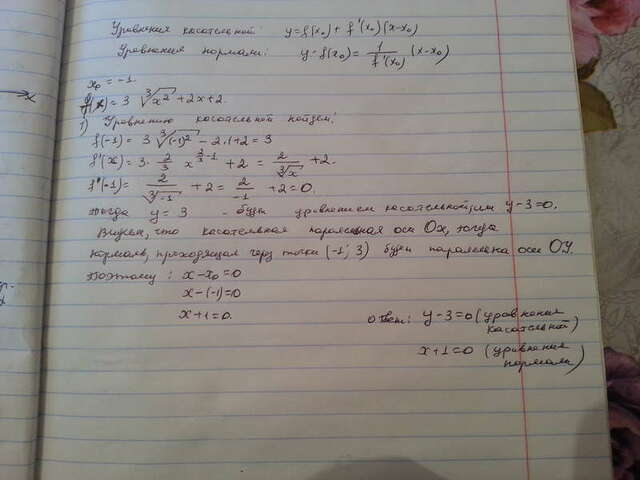 Уравнения касательной: y=f(x₀)+f'(x₀)(x-x₀)
Уравнения нормали: y-f(x₀)= 1/f'(x₀) (x-x₀)
x₀=-1.
f(x)=3 ∛x² +2x+2.
1) Уравнению касательной найдем:
f(-1)= 3 ∛(-1)² - 2·1+2=3
f'(x)=3· 2/3 x^(2/3-1) +2 = 2/∛x +2.
f'(-1)= 2/∛-1 +2= 2/-1 +2=0.
тогда y=3 - будет уравнением касательной, или y-3=0.
Видим, что касательная параллельная оси Ox, тогда
нормаль, проходящая через точки (-1; 3) будет параллельна оси OY.
Поэтому: x-x₀=0
x-(-1)=0
x+1=0.
ответ: y-3=0 (уравнения
касательной)
x+1=0 (уравнения
нормали)